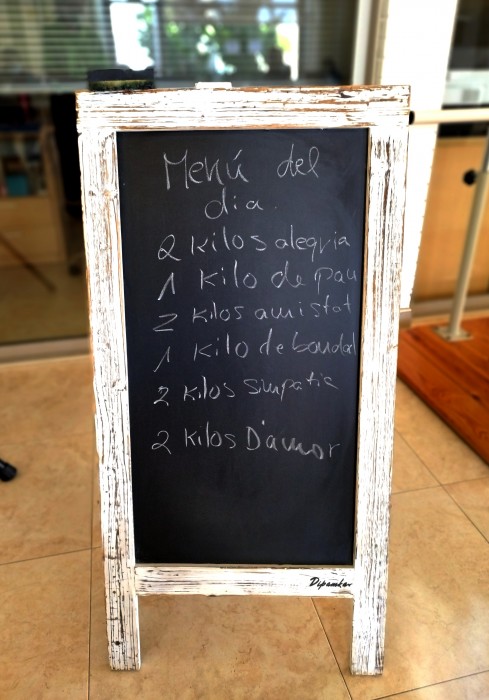 Menú del
dia.
2 kilos alegria
1 kilo de pau
2 kilos amistat
1 kilo de bondat
2 kilos simpatia
2 kilos D'amor
Dipamkar